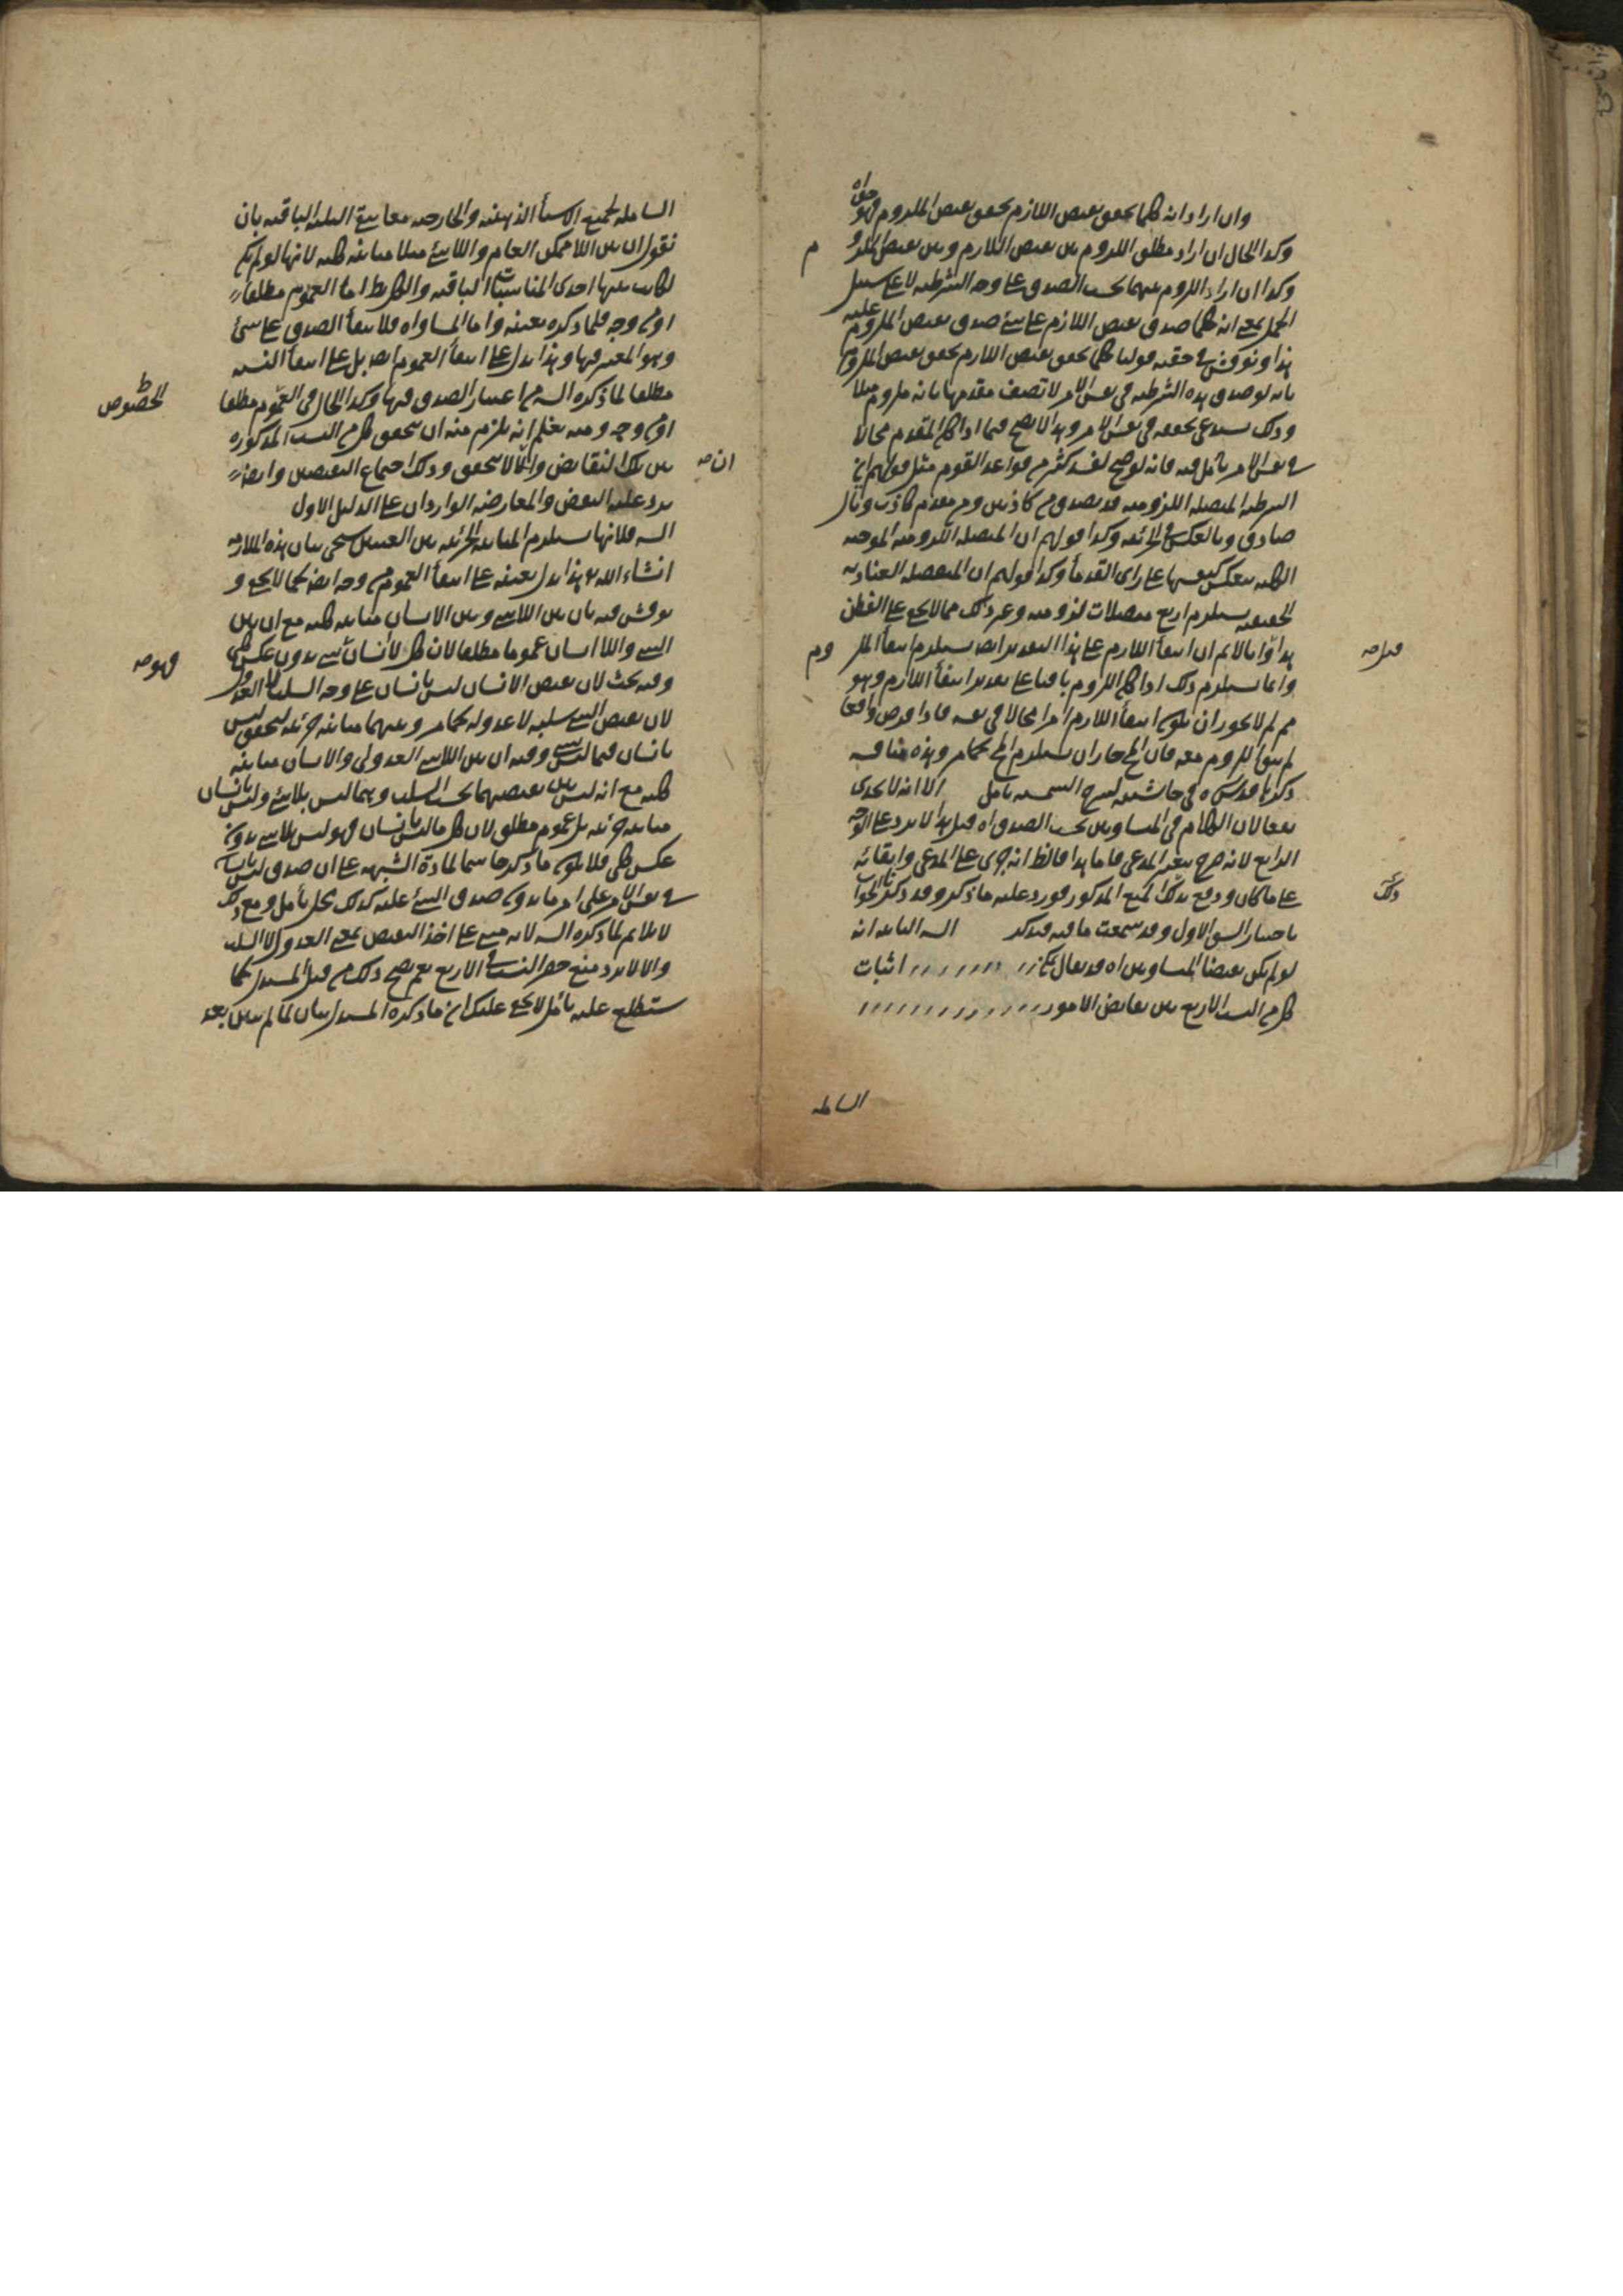 وان اراد انه كلما تحقق نقيض اللازم تحقق نقيض الملزوم فهو
وكذا الحال ان اراد مطلق اللزوم بين نقيض اللازم وبين نقيض الملزو
م
وكذا ان اراد اللزوم بينهما بحسب الصدق على وجه الشرطيه لا على سبيل
الحمل بمعنى انه كلما صدق نقيض اللازم على شئ صدق نقيض الملزوم عليه
هذا ونوقش في حقيه قولنا كلما تحقق نقيض اللازم تحقق نقيض الملزوم
بانه لو صدق هذه الشرطيه في نفس الامر لاتصف مقدمها بانه ملزوم مثلا
وذلك يستدعي تحققه في نفس الامر وهذا لا يصح فيما اذا كان المقدم محالا
في نفس الامر تأمل فيه فانه لو صح لفسد كثير من قواعد القوم مثل قولهم ان
الشرطيه المتصله اللزوميه قد يصدق من كاذبين ومن مقدم كاذب وتال
صادق وبالعكس في الجزئيه وكذا قولهم ان المتصله اللزوميه الموجبه
الكليه ينعكس كنفسها على راى القدمأ وكذا قولهم ان المنفصله العناديه
الحقيقيه يستلزم اربع متصلات لزوميه وغير ذلك مما لا يخفى على الفطن
هذا وانا لا نم ان انتفأ اللازم على هذا التقدير ايضا يستلزم انتفأ الملز
وم
وانما يستلزم ذلك اذا كان اللزوم باقيا على تقدير انتفأ اللازم وهو
مم لم لا يجوز ان يكون انتفأ اللازم امرا محالا في نفسه فاذا فرض واقعا
لم يبق اللزوم معه فان المح جاز ان يستلزم المح كما مر وهذه مناقشه
ذكرها قدس سره في حاشيته لشرح الشمسيه تأمل الا انه لا يجدى
نفعا لان الكلام في المتساويين بحسب الصدق اه قيل هذا لا يرد على الوجه
الرابع لانه صرح بتغير المدعى فاما هذا فالظ انه جرى على المدعى وابقائه
على ما كان ودفع بذلك المنع المذكور فورد عليه ما ذكر وقد ذكرنا الجواب
ذلك
باختيار الشق الاول وقد سمعت ما فيه فتذكر الشبه الثانيه انه
لو لم يكن نقيضا المتساويين اه قد يقال يمكن اثبات
كل من النسب الاربع بين نقايض الامور
الشامله
الشامله لجميع الاشيأ الذهنيه والخارجيه معا بنفى الثلث الباقيه بان
نقول ان بين اللاممكن العام واللاشئ مثلا مباينه كليه لانها لو لم يكن
لكانت بينها احدى المناسبات الباقيه والكل بط اما العموم مطلقا
او من وجه فلما ذكره بعينه واما المساواه فلانتفأ الصدق على شئ
وهو المعتبر فيها وهذا يدل على انتفأ العموم ايضا بل على انتفأ النسبه
مطلقا لما ذكره السيد من اعتبار الصدق فيها وكذا الحال في العموم مطلقا
الخصوص
او من وجه ومنه يعلم انه يلزم منه ان يتحقق كل من النسب المذكوره
بين تلك النقايض وان لا يتحقق وذلك اجتماع النقيضين وايضا
يرد عليه النقض والمعارضه الواردان على الدليل الاول
السيد فلانها يستلزم المباينه الجزئيه بين العينين سيجئ بيان هذه الملازمه
انشاء الله تع هذا يدل بعينه على انتفأ العموم من وجه ايضا كما لا يخفى و
نوقش فيه بان بين اللاشئ وبين الانسان مباينه كليه مع ان بين
الشئ واللاانسان عموما مطلقا لان كل لاانسان شئ بدون عكس كلى
فهو
وفيه بحث لان نقيض الانسان ليس بانسان على وجه السلب لا العدول
لان نقيض الشئ سلبه لا عدوله كما مر وبينهما مباينه جزئيه لتحقق ليس
بانسان فيما ليس بشئ وفيه ان بين اللاشئ العدولى والانسان مباينه
كليه مع انه ليس بين نقيضيهما بحسب السلب وهما ليس بلاشئ وليس بانسان
مباينه جزئيه بل عموم مطلق لان كل ما ليس بانسان فهو ليس بلاشئ بدون
عكس كلى فلا يكون ما ذكر حاسما لمادة الشبهه على ان صدق ليس بانسان
في نفس الامر على امر ما بدون صدق الشئ عليه كذلك محل تأمل ومع ذلك
لا يلائم لما ذكره السيد لانه مبنى على اخذ النقيض بمعنى العدول لا السلب
والا لا يرد منع حصر النسب في الاربع نعم يصح ذلك من قبل المستدل كما
ستطلع عليه تأمل لا يخفى عليك ان ما ذكره المستدل بيان لما لم يبين بعد